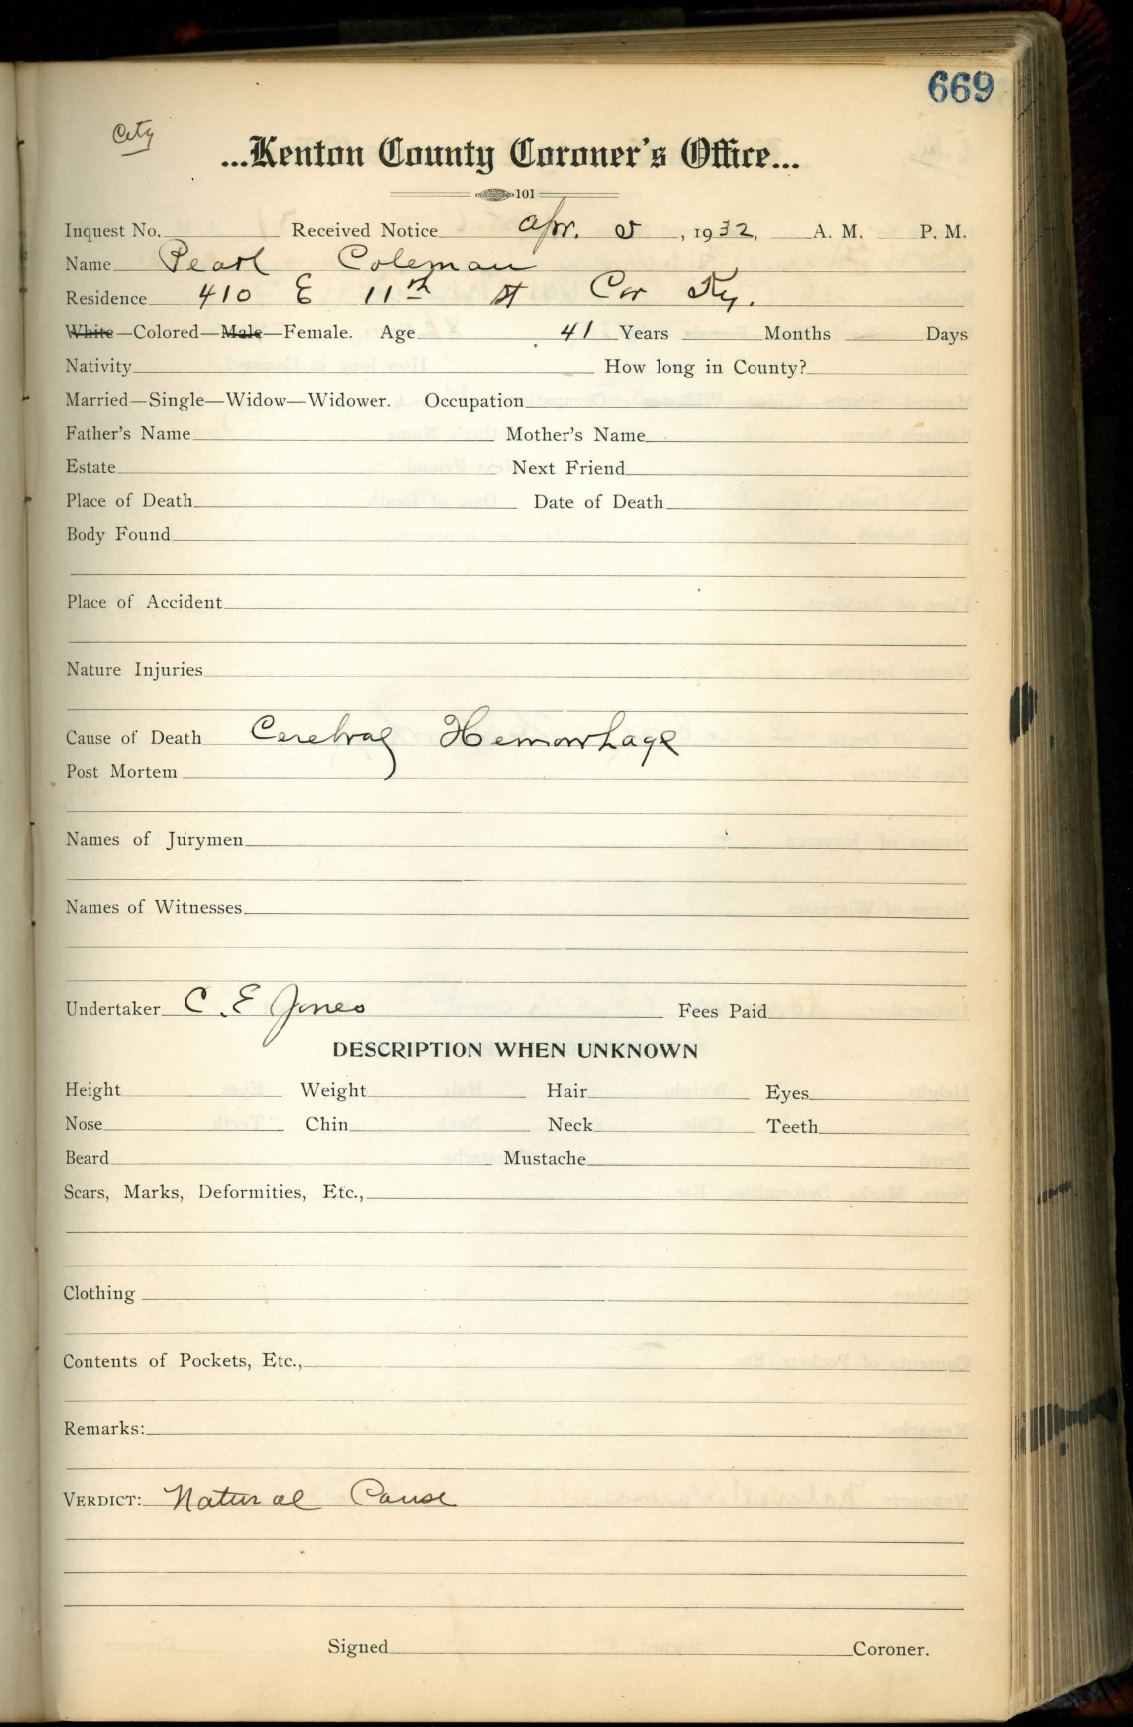 669
City
...Kenton County Coroner's Office...
101
Inquest No. Received Notice Apr. 5, 1932, A. M. P. M.
Name Pearl Coleman
Residence 410 E 11th St Cov Ky.
White—Colored—Male—Female. Age 41 Years Months Days
Nativity How long in County?
Married—Single—Widow—Widower. Occupation
Father's Name Mother's Name
Estate Next Friend
Place of Death Date of Death
Body Found
Place of Accident
Nature Injuries
Cause of Death Cerebral Hemorrhage
Post Mortem
Names of Jurymen
Names of Witnesses
Undertaker C. E Jones Fees Paid
DESCRIPTION WHEN UNKNOWN
Height Weight Hair Eyes
Nose Chin Neck Teeth
Beard Mustache
Scars, Marks, Deformities, Etc.,
Clothing
Contents of Pockets, Etc.,
Remarks:
VERDICT: Natural Cause
Signed Coroner.